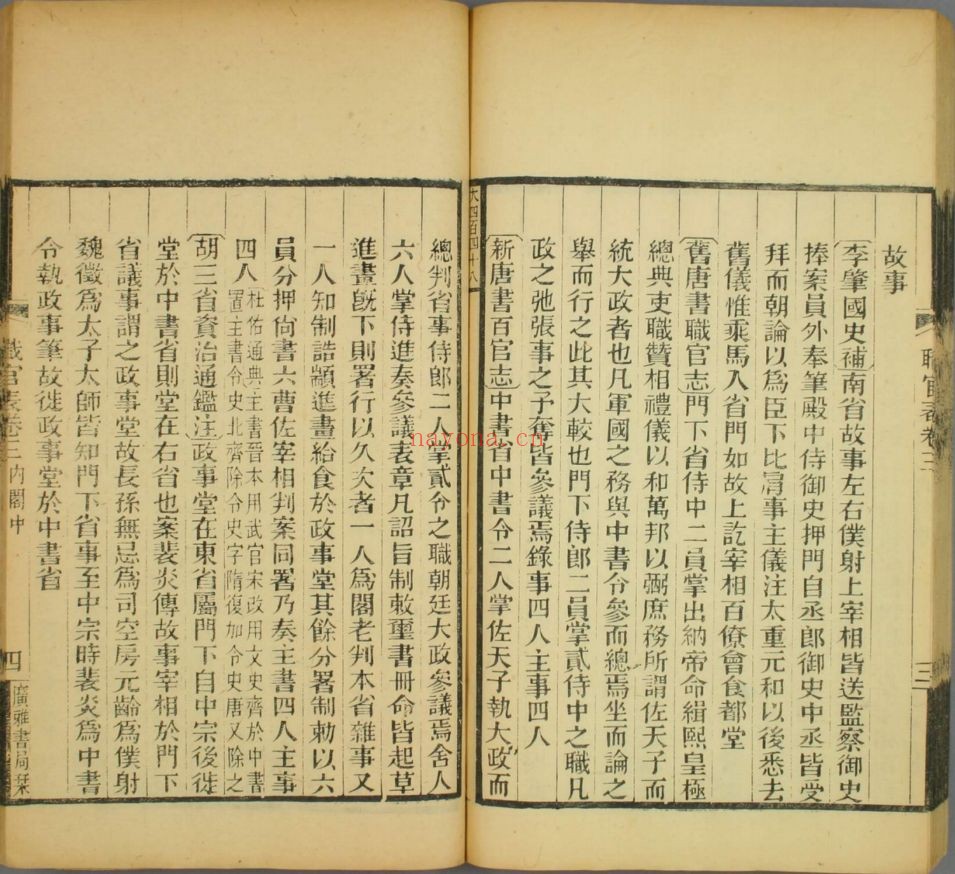 職官表卷三
三
故事
李肇國史補南省故事左右僕射上宰相皆送監察御史
捧案員外奉筆殿中侍御史押門自丞郎御史中丞皆受
拜而朝論以爲臣下比肩事主儀注太重元和以後悉去
舊儀惟乘馬入省門如故上訖宰相百僚會食都堂
舊唐書職官志門下省侍中二員掌出納帝命緝熙皇極
總典吏職贊相禮儀以和萬邦以弼庶務所謂佐天子而
統大政者也凡軍國之務與中書令參而總焉坐而論之
舉而行之此其大較也門下侍郎二員掌貳侍中之職凡
政之弛張事之予奪皆參議焉錄事四人主事四人
新唐書百官志中書省中書令二人掌佐天子執大政而
大四百四十八
總判省事侍郎二人掌貳令之職朝廷大政參議焉舍人
六人掌侍進奏參議表章凡詔旨制敕璽書冊命皆起草
進畫旣下則署行以久次者一人爲閣老判本省雜事又
一人知制誥顓進畫給食於政事堂其餘分署制勅以六
員分押尙書六曹佐宰相判案同署乃奏主書四人主事
四人
杜佑通典主書晉本用武官宋政用文史齊於中書
置主書令史北齊除令史字隋復加令史唐又除之
胡三省資治通鑑注政事堂在東省屬門下自中宗後徙
堂於中書省則堂在右省也案裴炎傳故事宰相於門下
省議事謂之政事堂故長孫無忌爲司空房元齡爲僕射
魏徵爲太子太師皆知門下省事至中宗時裴炎爲中書
令執政事筆故徙政事堂於中書省
職官表卷三 內閣中
四
廣雅書局栞
nayona.cn